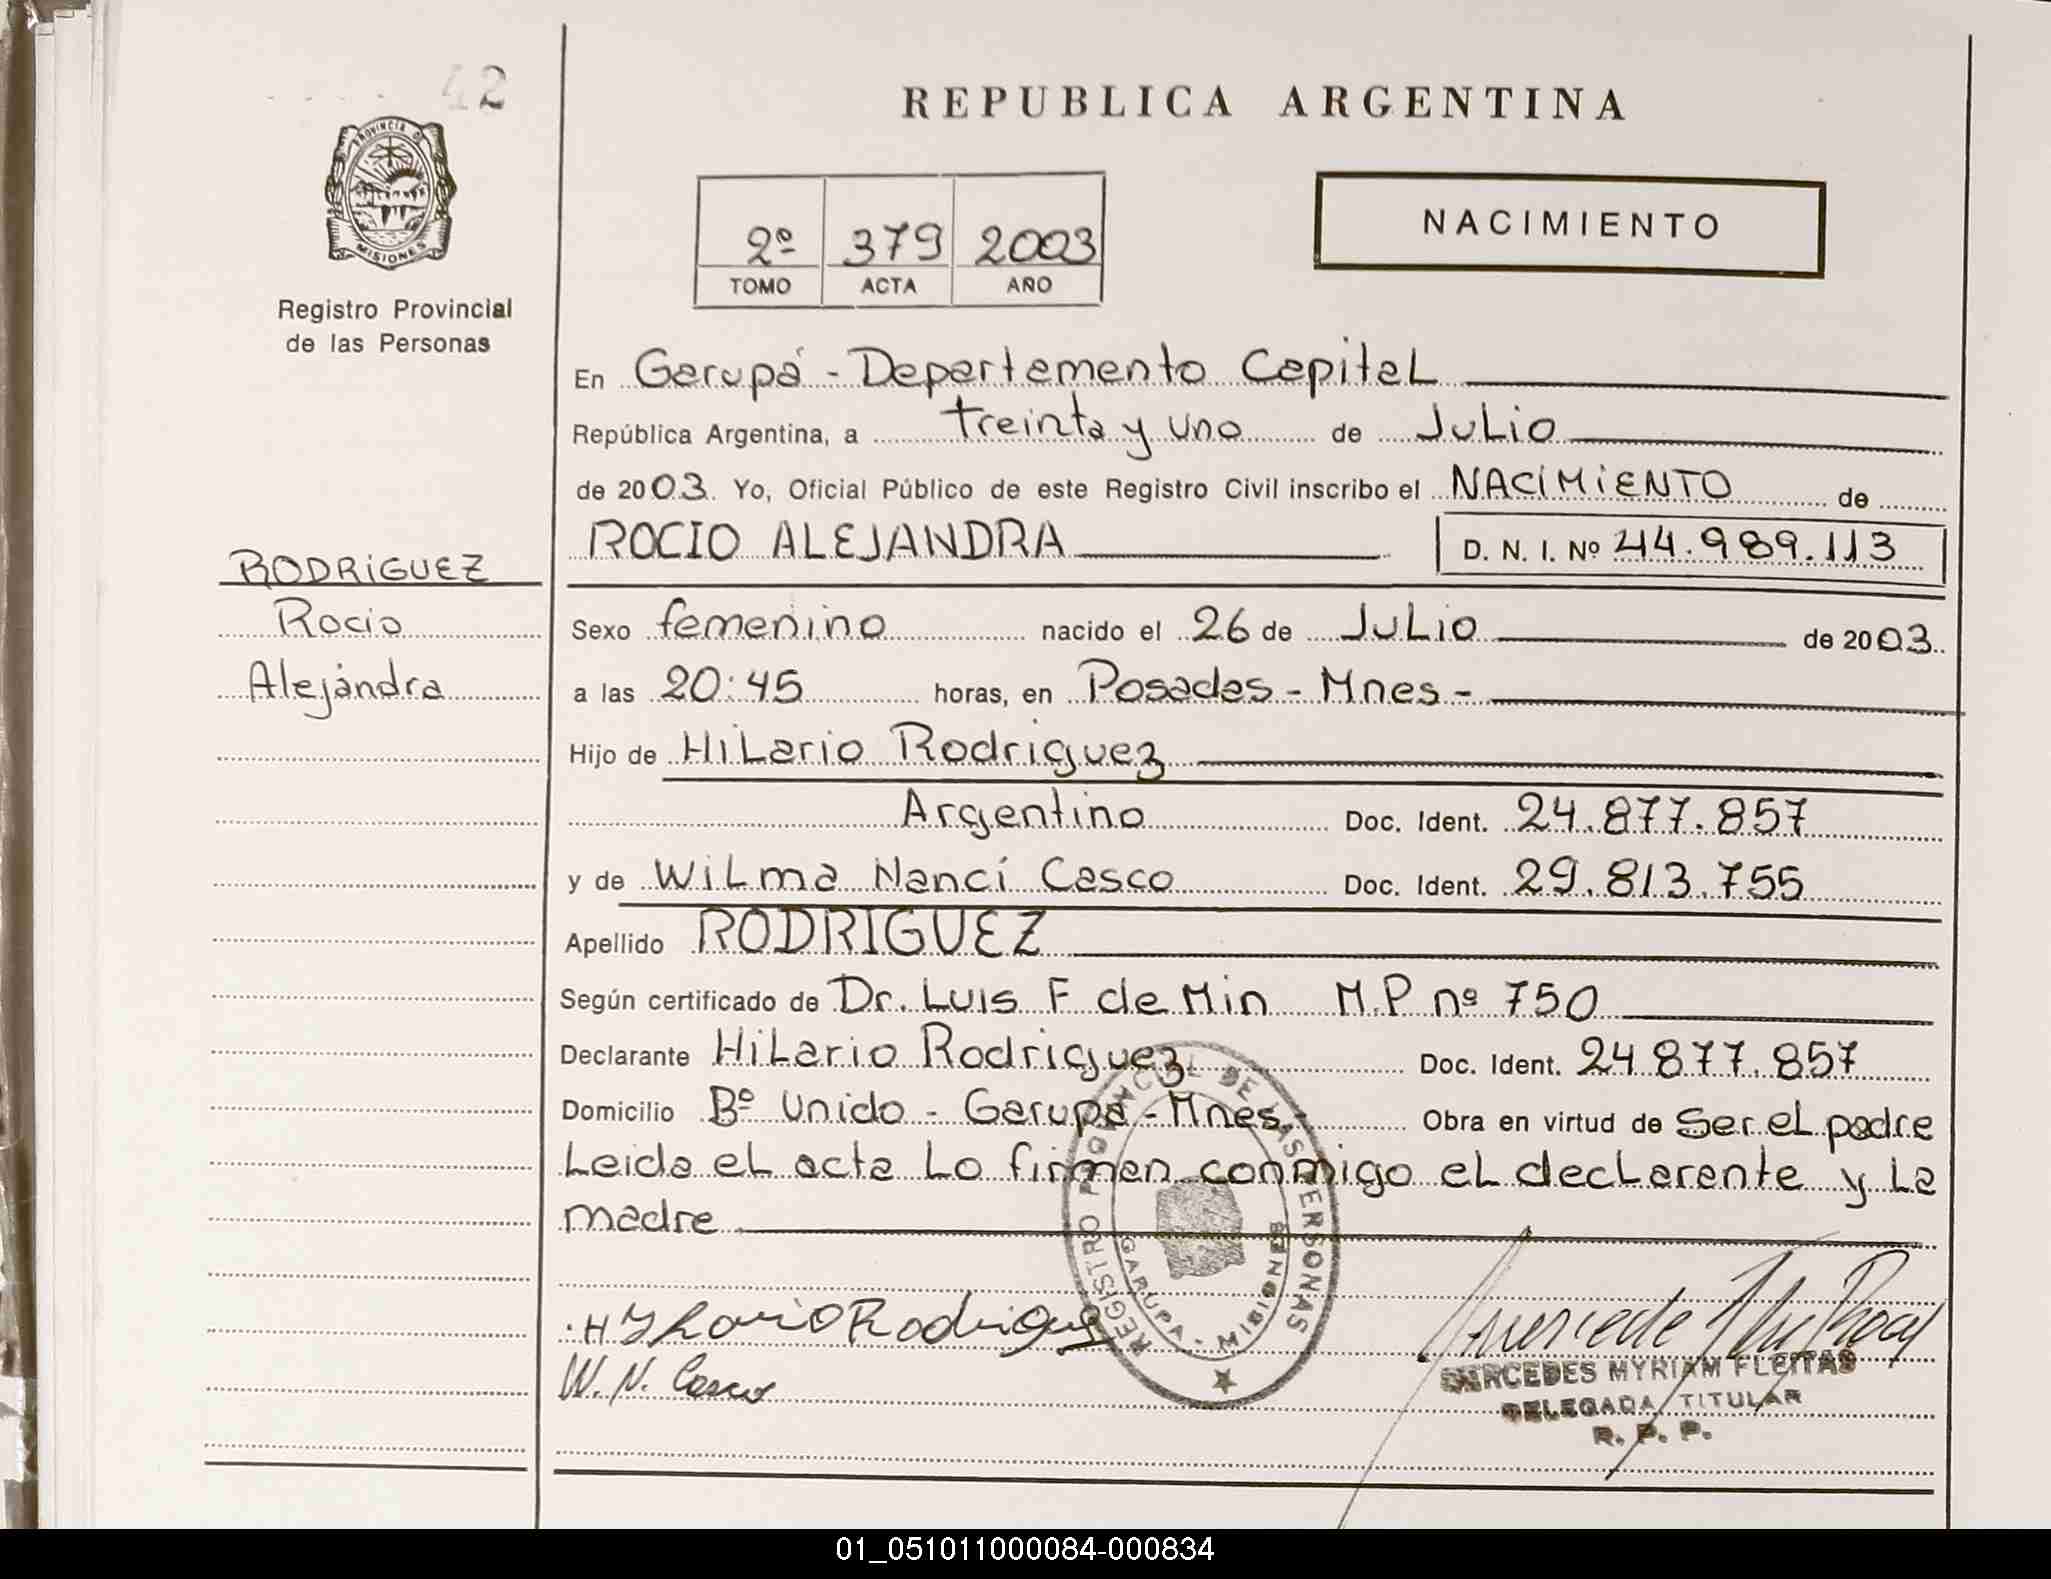 42
PROVINCIA DE
MISIONES
Registro Provincial
de las Personas
RODRIGUEZ
Rocio
Alejandra
REPUBLICA ARGENTINA
2º 379 2003
TOMO ACTA AÑO
NACIMIENTO
En Garupá - Departamento Capital
República Argentina, a treinta y uno de Julio
de 2003. Yo, Oficial Público de este Registro Civil inscribo el NACIMIENTO de
ROCIO ALEJANDRA D. N. I. Nº 44.989.113
Sexo femenino nacido el 26 de Julio de 2003.
a las 20:45 horas, en Posadas - Mnes -
Hijo de Hilario Rodriguez
Argentino Doc. Ident. 24.877.857
y de Wilma Nanci Casco Doc. Ident. 29.813.755
Apellido RODRIGUEZ
Según certificado de Dr. Luis F de Min M.P nº 750
Declarante Hilario Rodriguez Doc. Ident. 24 877.857
Domicilio Bº Unido - Garupa - Mnes.- Obra en virtud de Ser el padre
Leida el acta Lo firman conmigo el declarante y la
madre
REGISTRO PROVINCIAL DE LAS PERSONAS
GARUPA - MISIONES
W. N. Casco
MERCEDES MYRIAM FLEITAS
DELEGADA TITULAR
R. P. P.
01_051011000084-000834